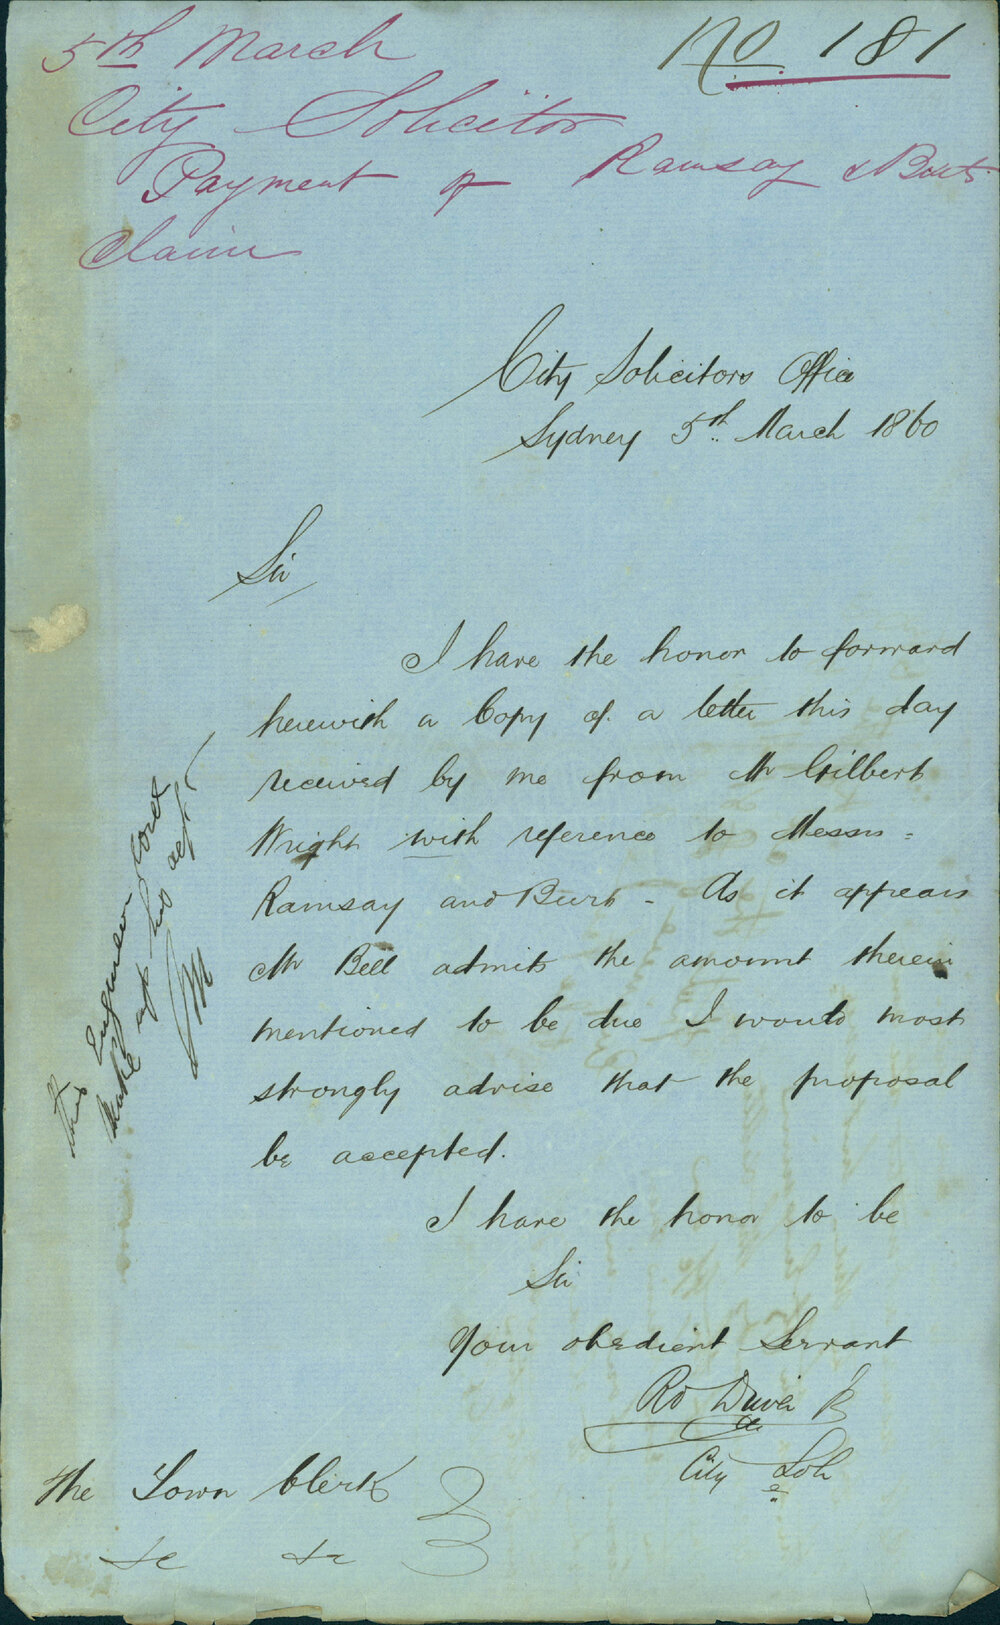 5th March No 181
City Solicitor
Payment of Ramsay & Burts
Claim
City Solicitors Office
Sydney 5th March 1860
Sir
I have the honor to forward
herewith a Copy of a letter this day
received by me from Mr Gilbert
Wright with reference to Messrs -
Ramsay and Burt - As it appears
Mr Bell admits the amount therein
mentioned to be due I would most
strongly advise that the proposal
be accepted.
I have the honor to be
Sir
Your obedient Servant
Rd Driver Jr
City Solr
The Town Clerk
&c &c
Engineer
make up his